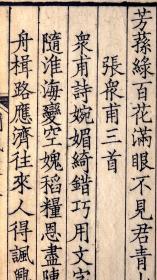 芳蓀綠百花滿眼不見君青山
張衆甫三首
衆甫詩婉媚綺錯巧用文字
隨淮海變空媿稻糧恩盡陳
舟楫路應濟往來人得諷興